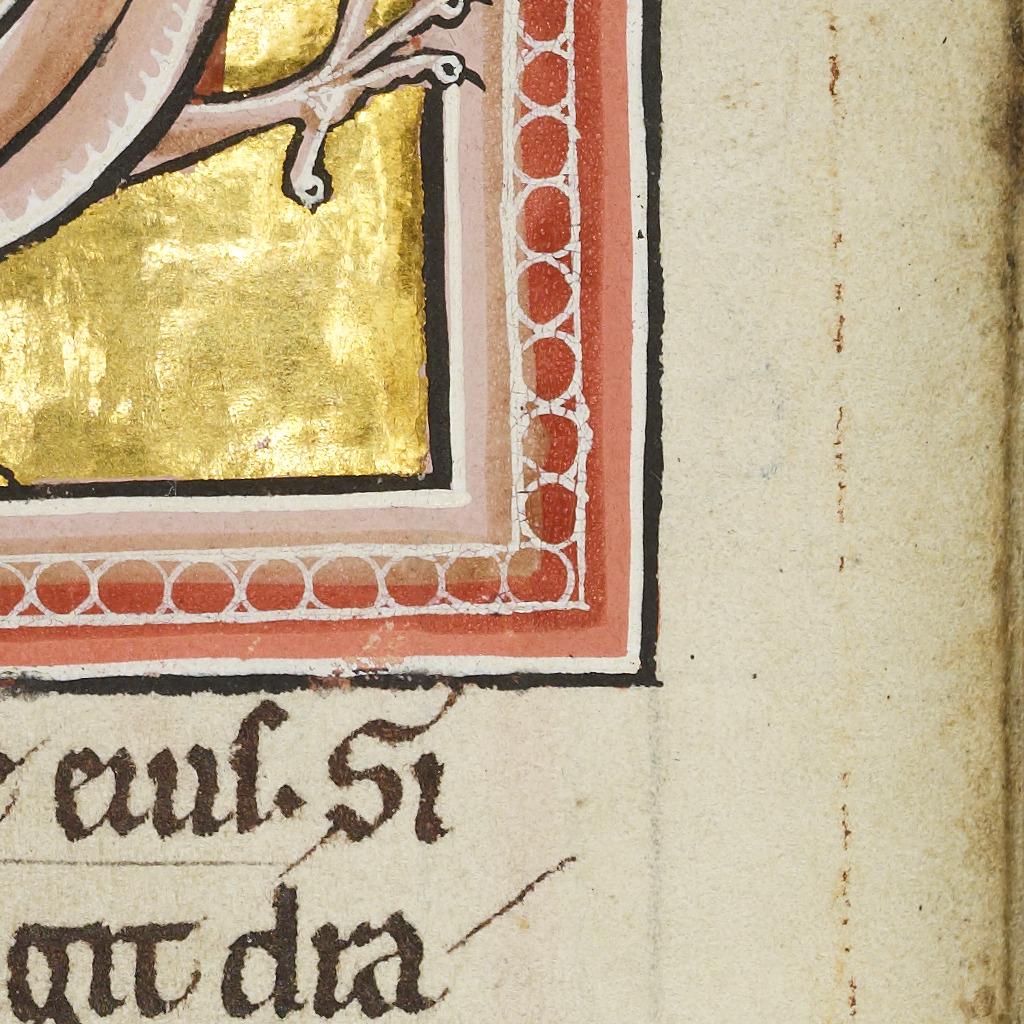 eiuſ. Si
git dra